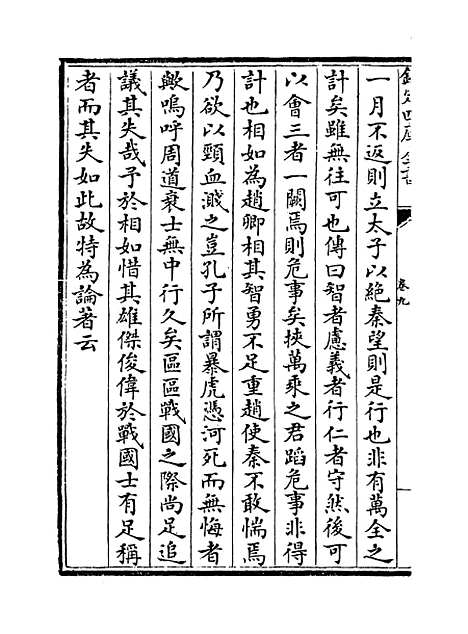 欽定四庫全書
卷九
一月不返則立太子以絶秦望則是行也非有萬全之
計矣雖無往可也傳曰智者慮義者行仁者守然後可
以會三者一闕焉則危事矣挾萬乘之君蹈危事非得
計也相如為趙卿相其智勇不足重趙使秦不敢惴焉
乃欲以頸血濺之豈孔子所謂暴虎馮河死而無悔者
歟嗚呼周道衰士無中行久矣區區戰國之際尚足追
議其失哉予於相如惜其雄傑俊偉於戰國士有足稱
者而其失如此故特為論著云